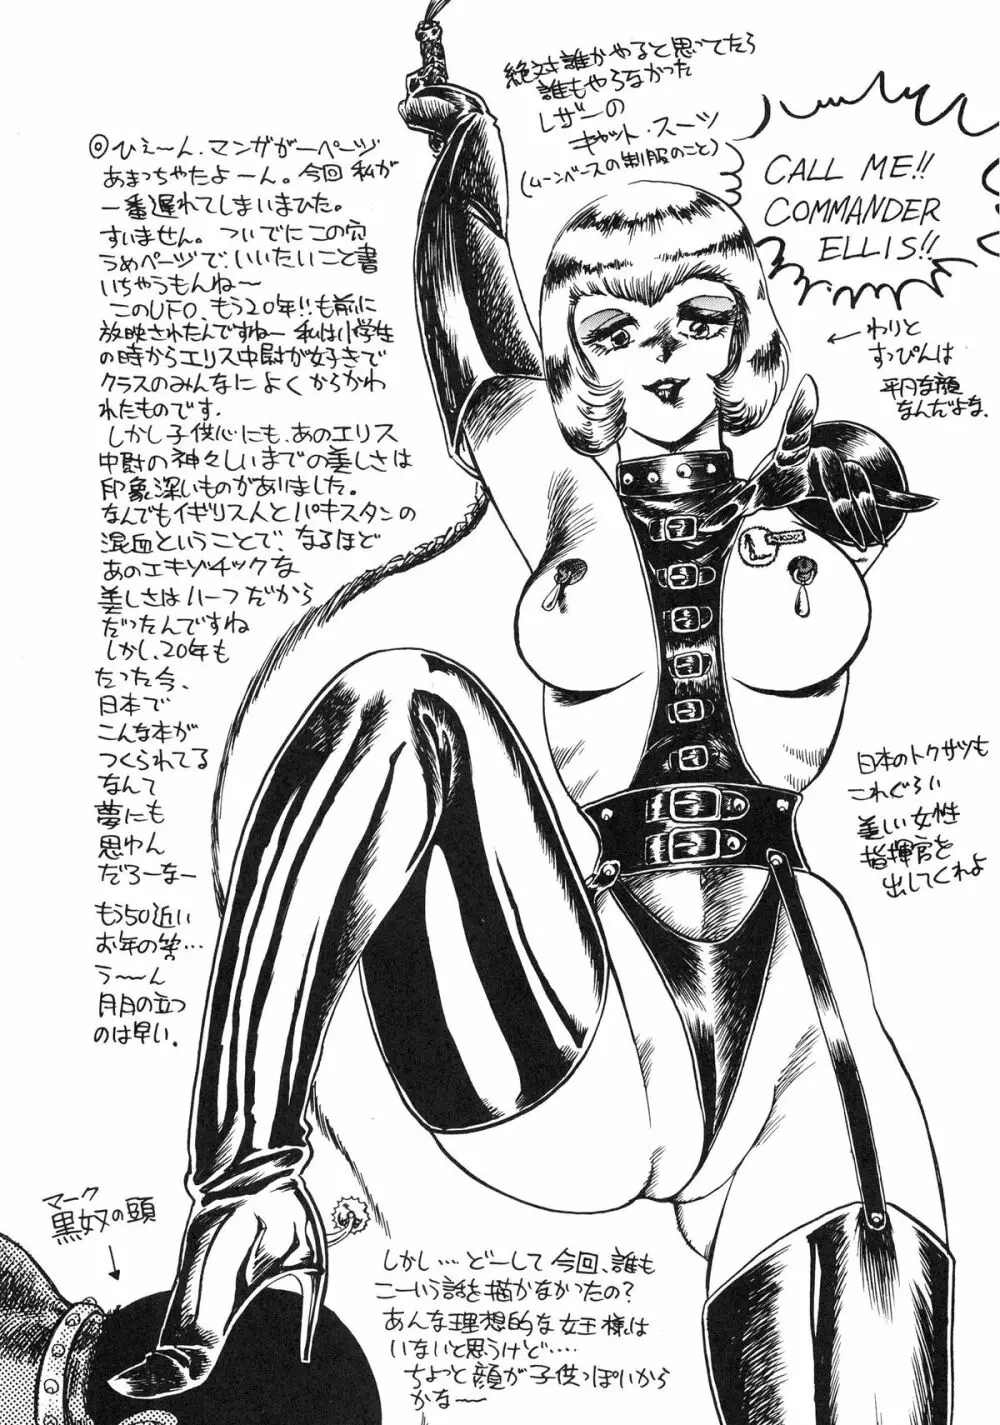 絶対誰かやると思ってたら
誰もやらなかった
レザーの
キャット・スーツ
(ムーンベースの制服のこと)
CALL ME!!
COMMANDER
ELLIS!!
◎ひぇーん、マンガが一ページ
あまっちゃたよーん。今回私が
一番遅れてしまいまひた。
すいません。ついでにこの穴
うめページで、いいたいこと書
いちゃうもんね〜
このUFO、もう20年!!も前に
放映されたんですねー私は小学生
の時からエリス中尉が好きで
クラスのみんなによくからかわ
れたものです.
しかし子供心にも、あのエリス
中尉の神々しいまでの美しさは
印象深いものがありました。
なんでもイギリス人とパキスタンの
混血ということで、なるほど
あのエキゾチックな
美しさはハーフだから
だったんですね
しかし、20年も
たった今、
日本で
こんな本が
つくられてる
なんて
夢にも
思わん
だろーなー
もう50近い
お年の筈…
う〜ん
月日の立つ
のは早い.
わりと
すっぴんは
平凡な顔
なんだよな.
日本のトクサツも
これぐらい
美しい女性
指揮官を
出してくれよ
マーク
黒奴の頭
しかし…どーして今回、誰も
こーいう話を描かなかったの?
あんな理想的な女王様は
いないと思うけど…
ちょっと顔が子供っぽいから
かな〜